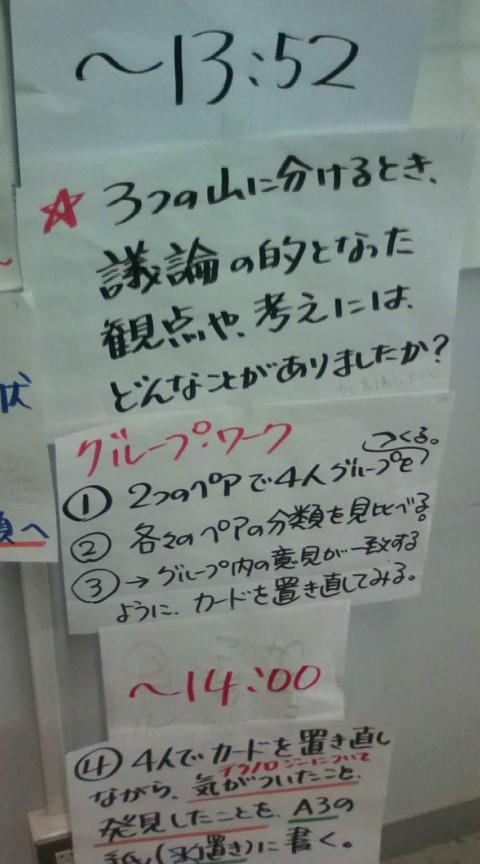 〜13:52
☆ 3つの山に分けるとき、
議論の的となった
観点や、考えには、
どんなことがありましたか?
グループ・ワーク
つくる。
① 2つのペアで4人グループを
② 各々のペアの分類を見比べる。
③ → グループ内の意見が一致する
ように、カードを置き直してみる。
〜14:00
④ 4人でカードを置き直し
について
ながら、気がついたこと、
発見したことを、A3の
紙(置き)に書く。
状
へ